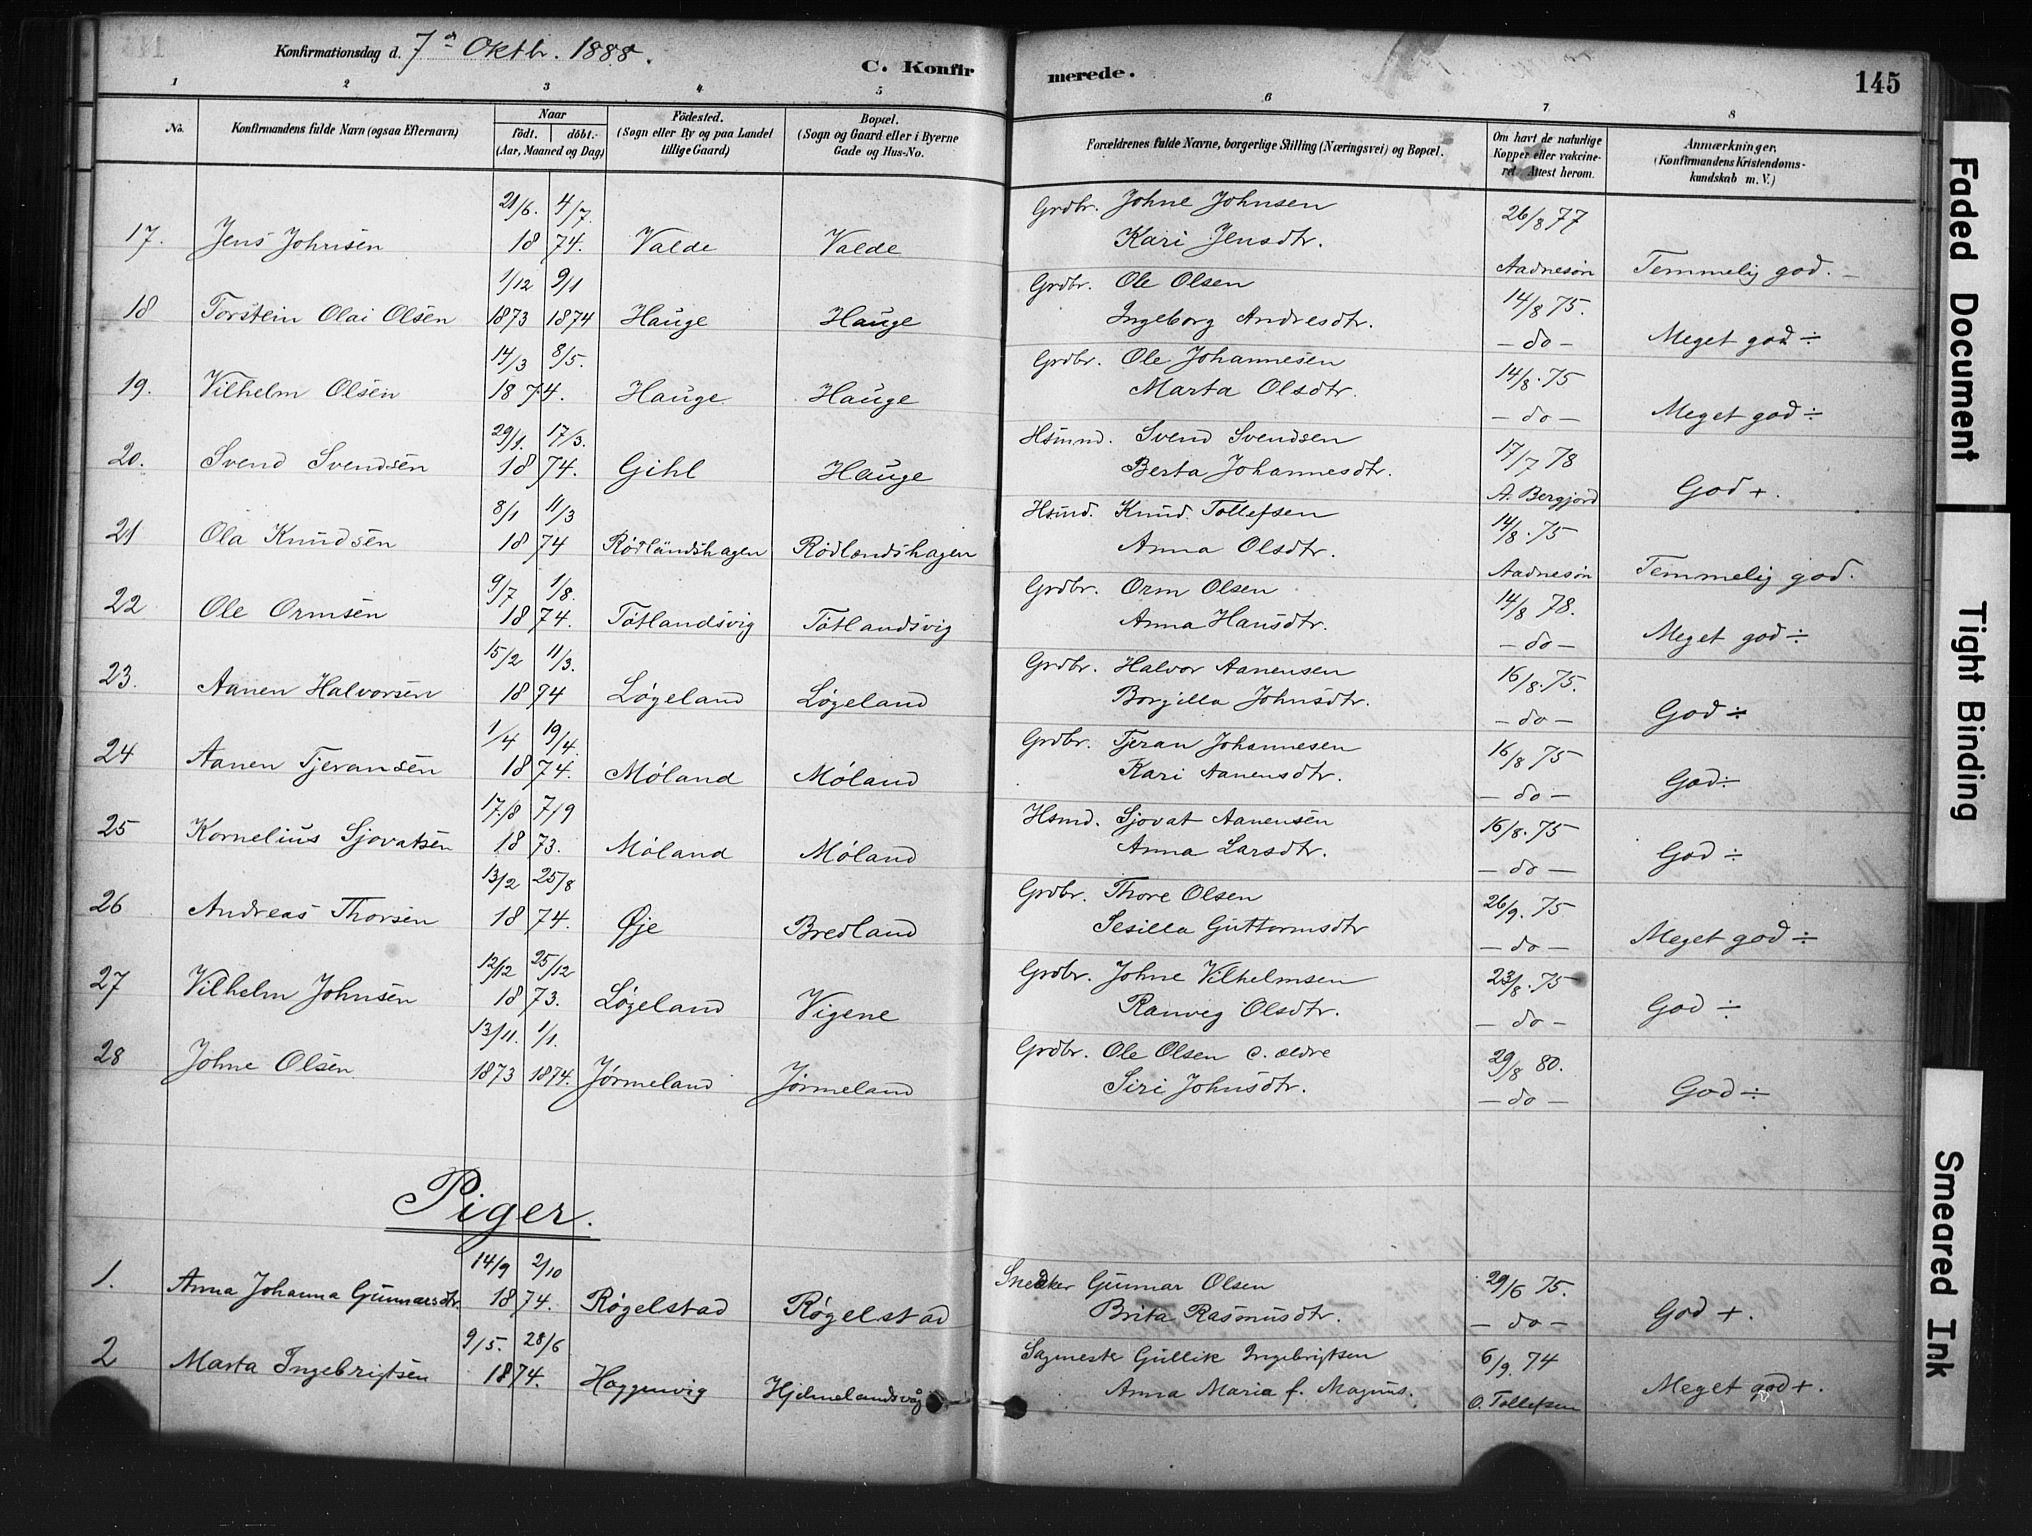 Konfirmationsdag d. 7de Oktbr. 1888.
C. Konfirmerede.
145
1 2 3 4 5 6 7 8
No.
Konfirmandens fulde Navn (ogsaa Efternavn)
Naar
födt. döbt.
(Aar, Maaned og Dag)
Födested.
(Sogn eller By og paa Landet tillige Gaard)
Bopæl.
(Sogn og Gaard eller i Byerne Gade og Hus-No.
Forældrenes fulde Navne, borgerlige Stilling (Næringsvei) og Bopæl.
Om havt de naturlige Kopper eller vakcineret. Attest herom.
Anmærkninger.
(Konfirmandens Kristendomskundskab m. V.)
17. Jens Johnsen 21/6. 4/7. 1874. Valde Valde Grdbr. Johne Johnsen Kari Jensdtr. 26/8 77 Aadnesøn Temmelig god. –
18 Torstein Olai Olsen 1/12 1873 2/1 1874 Hauge Hauge Grdbr. Ole Olsen Ingeborg Andresdtr. 14/8 75. – do – Meget god ÷
19. Vilhelm Olsen 14/3 8/5. 1874. Hauge Hauge Grdbr. Ole Johannesen Marta Olsdtr. 14/8. 75 – do – Meget god ÷
20. Svend Svendsen 29/1. 17/3. 1874. Gihl Hauge Hsmnd. Svend Svendsen Berta Johannesdtr. 17/7 78 A. Bergjord God +.
21 Ola Knudsen 8/1 11/3 1874 Rødlandshagen Rødlandshagen Hsmd. Knud Tollefsen Anna Olsdtr. 14/8. 75 Aadnesøn Temmelig god.
22 Ole Ormsen 9/7 1/8. 1874. Tøtlandsvig Tøtlandsvig Grdbr. Orm Olsen Anna Hansdtr. 14/8 78. – do – Meget god ÷
23. Aanen Halvorsen 15/2 11/3. 1874 Løgeland Løgeland Grdbr. Halvor Aanensen Borgilla Johnsdtr. 16/8. 75. – do – God ÷
24 Aanen Tjeransen 1/4 19/4. 1874. Møland Møland Grdbr. Tjeran Johannesen Kari Aanensdtr. 16/8 75 – do – God ÷
25 Kornelius Sjovatsen 17/8 7/9 1873. Møland Møland Hsmd. Sjovat Aanensen Anna Larsdtr. 16/8. 75 – do – God ÷
26 Andreas Thorsen 13/2 25/8 1874. Øje Bredland Grdbr. Thore Olsen Sesilla Guttormsdtr 26/9. 75 – do – Meget god ÷
27 Vilhelm Johnsen 12/12 25/12 1873. Løgeland Vigene Grdbr. Johne Vilhelmsen Ranveig Olsdtr. 23/8. 75 – do – God ÷
28 Johne Olsen 13/11. 1873 1/1. 1874. Jørmeland Jørmeland Grdbr. Ole Olsen d. ældre Siri Johnsdtr. 29/8 80. – do – God ÷
Piger.
1. Anna Johanna Gunnarsdtr. 14/9 2/10 1874. Røgelstad Røgelstad Snedker Gunnar Olsen Brita Rasmusdtr. 29/6 75. – do – God +.
2 Marta Ingebrigtsen 9/5. 28/6 1874. Haggenvig Hjelmelandsvåg Sagmester Gullik Ingebrigtsen Anna Maria f. Magnus. 6/9. 74 O. Tollefsen Meget god +.
Faded Document
Tight Binding
Smeared Ink